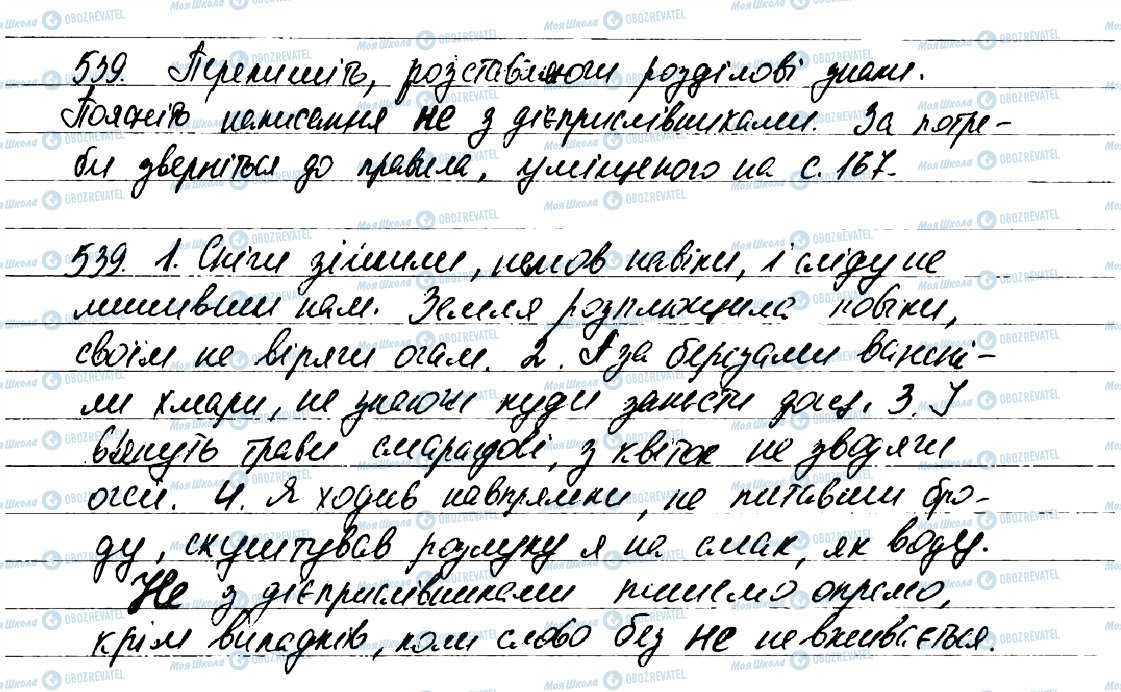 539. Перепишіть, розставляючи розділові знаки.
Поясніть написання не з дієприслівниками. За потре-
би зверніться до правила, уміщеного на с. 167.
539. 1. Сніги зійшли, немов навіки, і сліду не
лишивши нам. Земля розплющила повіки,
своїм не вірячи очам. 2. А за берізами важкі-
ли хмари, не знаючи куди занести дощ. 3. І
в'януть трави смарагдові, з квіток не зводячи
очей. 4. Я ходив навпрямки, не питавши бро-
ду, скуштував розлуку я на смак, як воду.
Не з дієприслівниками пишемо окремо,
крім випадків, коли слово без не не вживається.